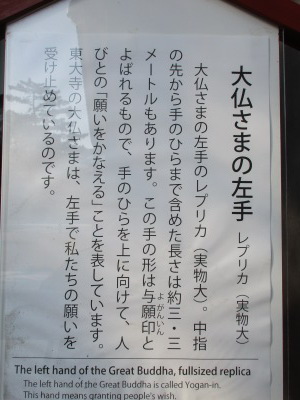 大仏さまの左手 レプリカ（実物大）
大仏さまの左手のレプリカ（実物大）。中指
の先から手のひらまで含めた長さは約三・三
メートルもあります。この手の形は与願印と
よがんいん
よばれるもので、手のひらを上に向けて、人
びとの「願いをかなえる」ことを表しています。
東大寺の大仏さまは、左手で私たちの願いを
受け止めているのです。
The left hand of the Great Buddha, fullsized replica
The left hand of the Great Buddha is called Yogan-in.
This hand means granting people's wish.